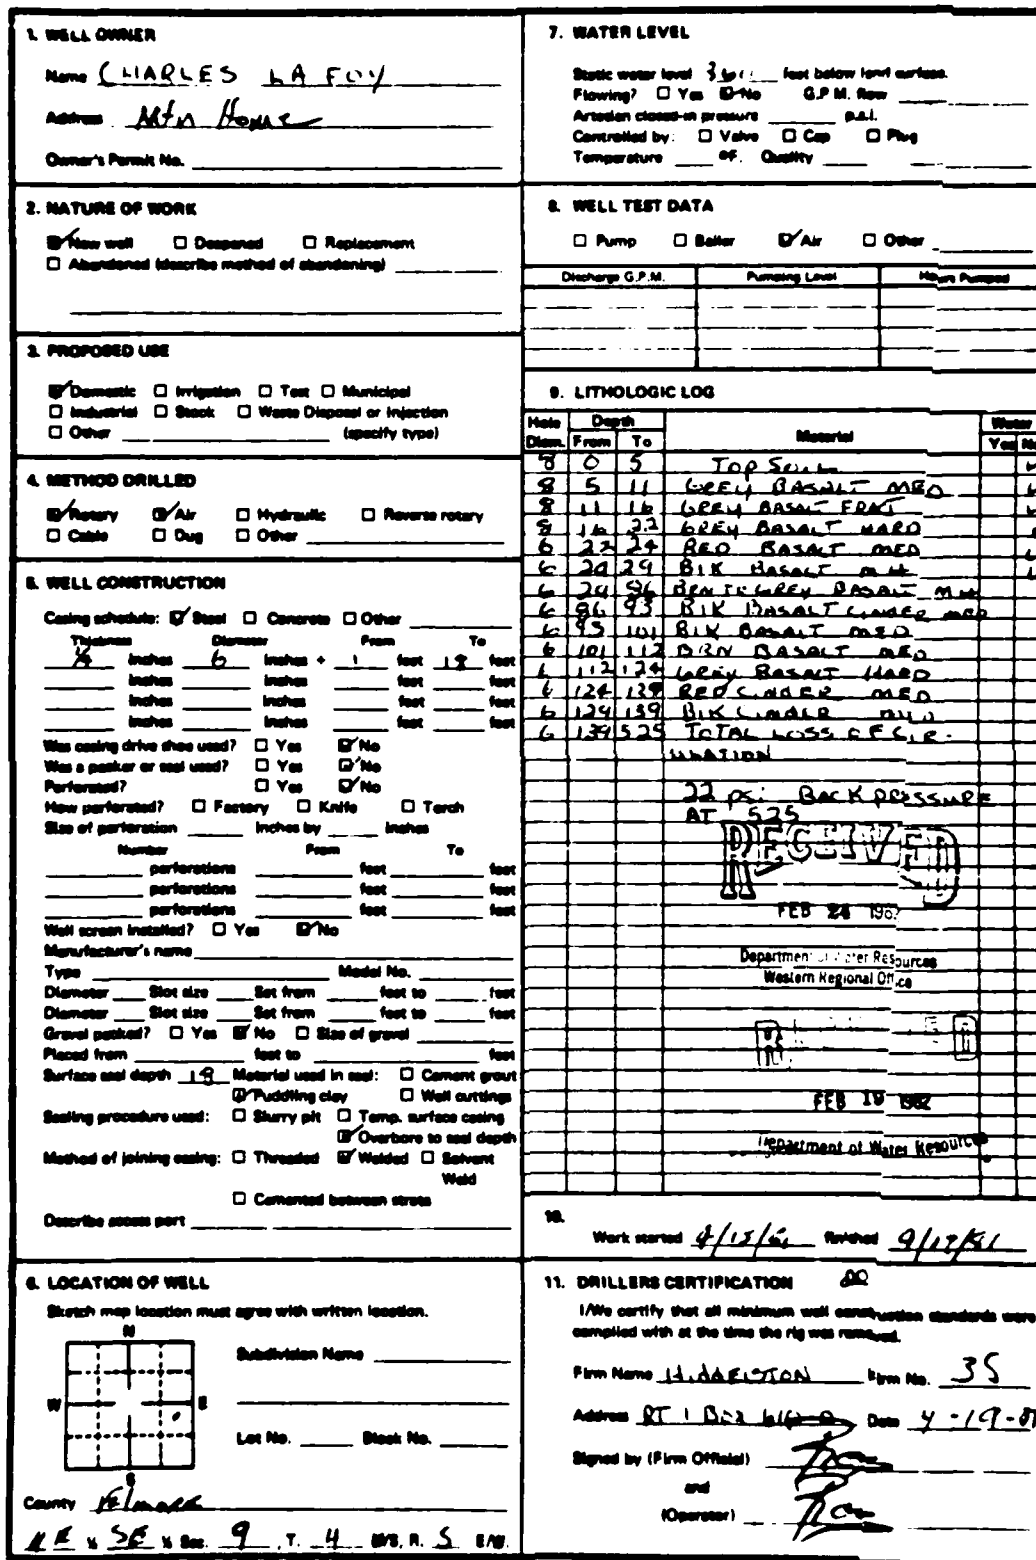 1. WELL OWNER
Name CHARLES LA FOY
Address Mtn Home
Owner's Permit No.
2. NATURE OF WORK
New well Deepened Replacement
Abandoned (describe method of abandoning)
3. PROPOSED USE
Domestic Irrigation Test Municipal
Industrial Stock Waste Disposal or Injection
Other (specify type)
4. METHOD DRILLED
Rotary Air Hydraulic Reverse rotary
Cable Dug Other
5. WELL CONSTRUCTION
Casing schedule: Steel Concrete Other
Thickness Diameter From To
1/4 inches 6 inches + 1 feet 18 feet
inches inches feet feet
inches inches feet feet
inches inches feet feet
Was casing drive shoe used? Yes No
Was a packer or seal used? Yes No
Perforated? Yes No
How perforated? Factory Knife Torch
Size of perforation inches by inches
Number From To
perforations feet feet
perforations feet feet
perforations feet feet
Well screen installed? Yes No
Manufacturer's name
Type Model No.
Diameter Slot size Set from feet to feet
Diameter Slot size Set from feet to feet
Gravel packed? Yes No Size of gravel
Placed from feet to feet
Surface seal depth 18 Material used in seal: Cement grout
Puddling clay Well cuttings
Sealing procedure used: Slurry pit Temp. surface casing
Overbore to seal depth
Method of joining casing: Threaded Welded Solvent
Weld
Cemented between strata
Describe access port
6. LOCATION OF WELL
Sketch map location must agree with written location.
N
W E
S
Subdivision Name
Lot No. Block No.
County Elmore
NE ¼ SE ¼ Sec. 9, T. 4 N/S, R. 5 E/W.
7. WATER LEVEL
Static water level feet below land surface.
Flowing? Yes No G.P.M. flow
Artesian closed-in pressure p.s.i.
Controlled by: Valve Cap Plug
Temperature °F. Quality
8. WELL TEST DATA
Pump Bailer Air Other
Discharge G.P.M. Pumping Level Hours Pumped
9. LITHOLOGIC LOG
Hole Depth Material Water
Diam. From To Yes No
8 0 5 TOP SOIL
8 5 11 GREY BASALT MED
8 11 16 GREY BASALT FRACT
8 16 22 GREY BASALT HARD
6 22 24 RED BASALT MED
6 24 29 BlK BASALT M H
6 29 86 BRN TO GREY BASALT M H
6 86 93 BlK BASALT CINDER MED
6 93 101 BlK BASALT MED
6 101 112 BRN BASALT MED
6 112 124 GREY BASALT HARD
6 124 129 RED CINDER MED
6 129 139 BlK CINDER MED
6 139 525 TOTAL LOSS OF CIR-
ULATION
22 psi BACK PRESSURE
AT 525
RECEIVED
FEB 24 1982
Department of Water Resources
Western Regional Office
FEB 19 1982
Department of Water Resources
10.
Work started finished
11. DRILLERS CERTIFICATION
I/We certify that all minimum well construction standards were
complied with at the time the rig was removed.
Firm Name HIDDLESTON Firm No. 35
Address RT 1 Box Date
Signed by (Firm Official)
and
(Operator)